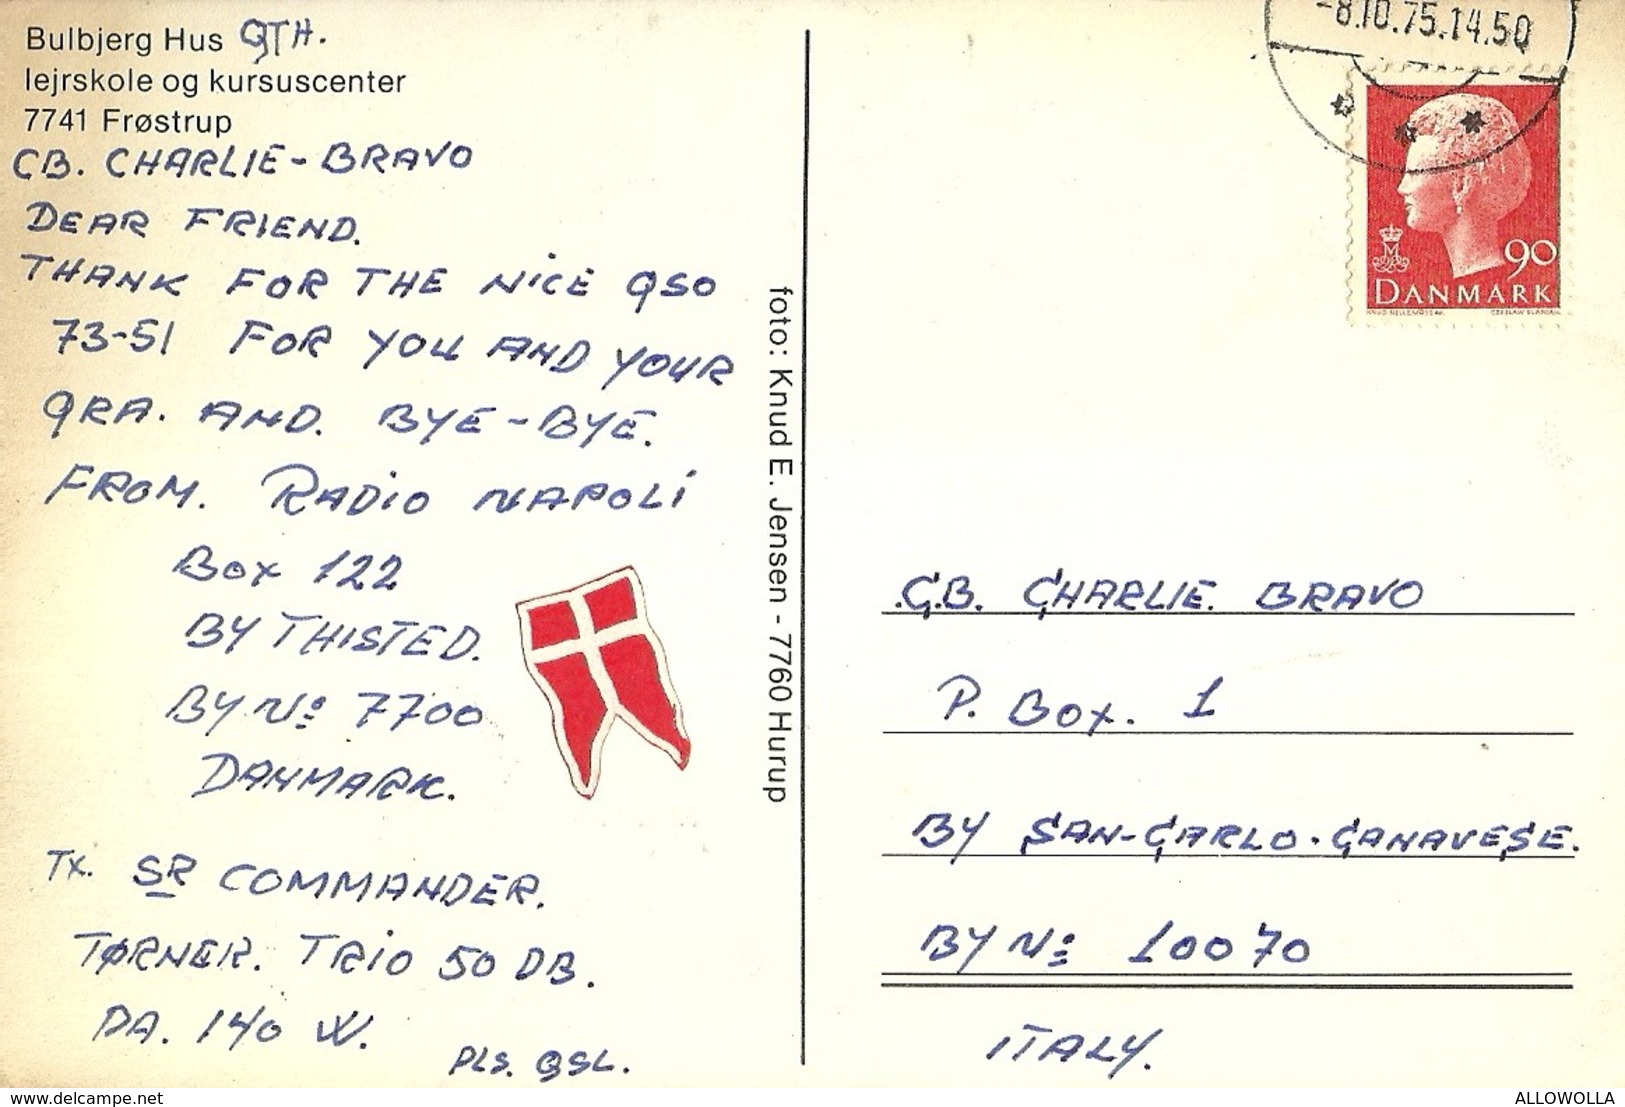 Bulbjerg Hus QTH.
lejrskole og kursuscenter
7741 Frøstrup
CB. CHARLIE-BRAVO
DEAR FRIEND.
THANK FOR THE NICE QSO
73-51 FOR YOU AND YOUR
QRA. AND. BYE-BYE.
FROM. RADIO NAPOLI
BOX 122
BY THISTED.
BY Nº 7700
DANMARK.
TX. SR COMMANDER.
TØRNER. TRIO 50 DB.
DA. 140 W.
PLS. QSL.
foto: Knud E. Jensen - 7760 Hurup
-8.10.75.14.50
90
DANMARK
C.B. CHARLIE. BRAVO
P. BOX. 1
BY SAN-CARLO.CANAVESE.
BY Nº 10070
ITALY.
www.delcampe.net
ALLOWOLLA